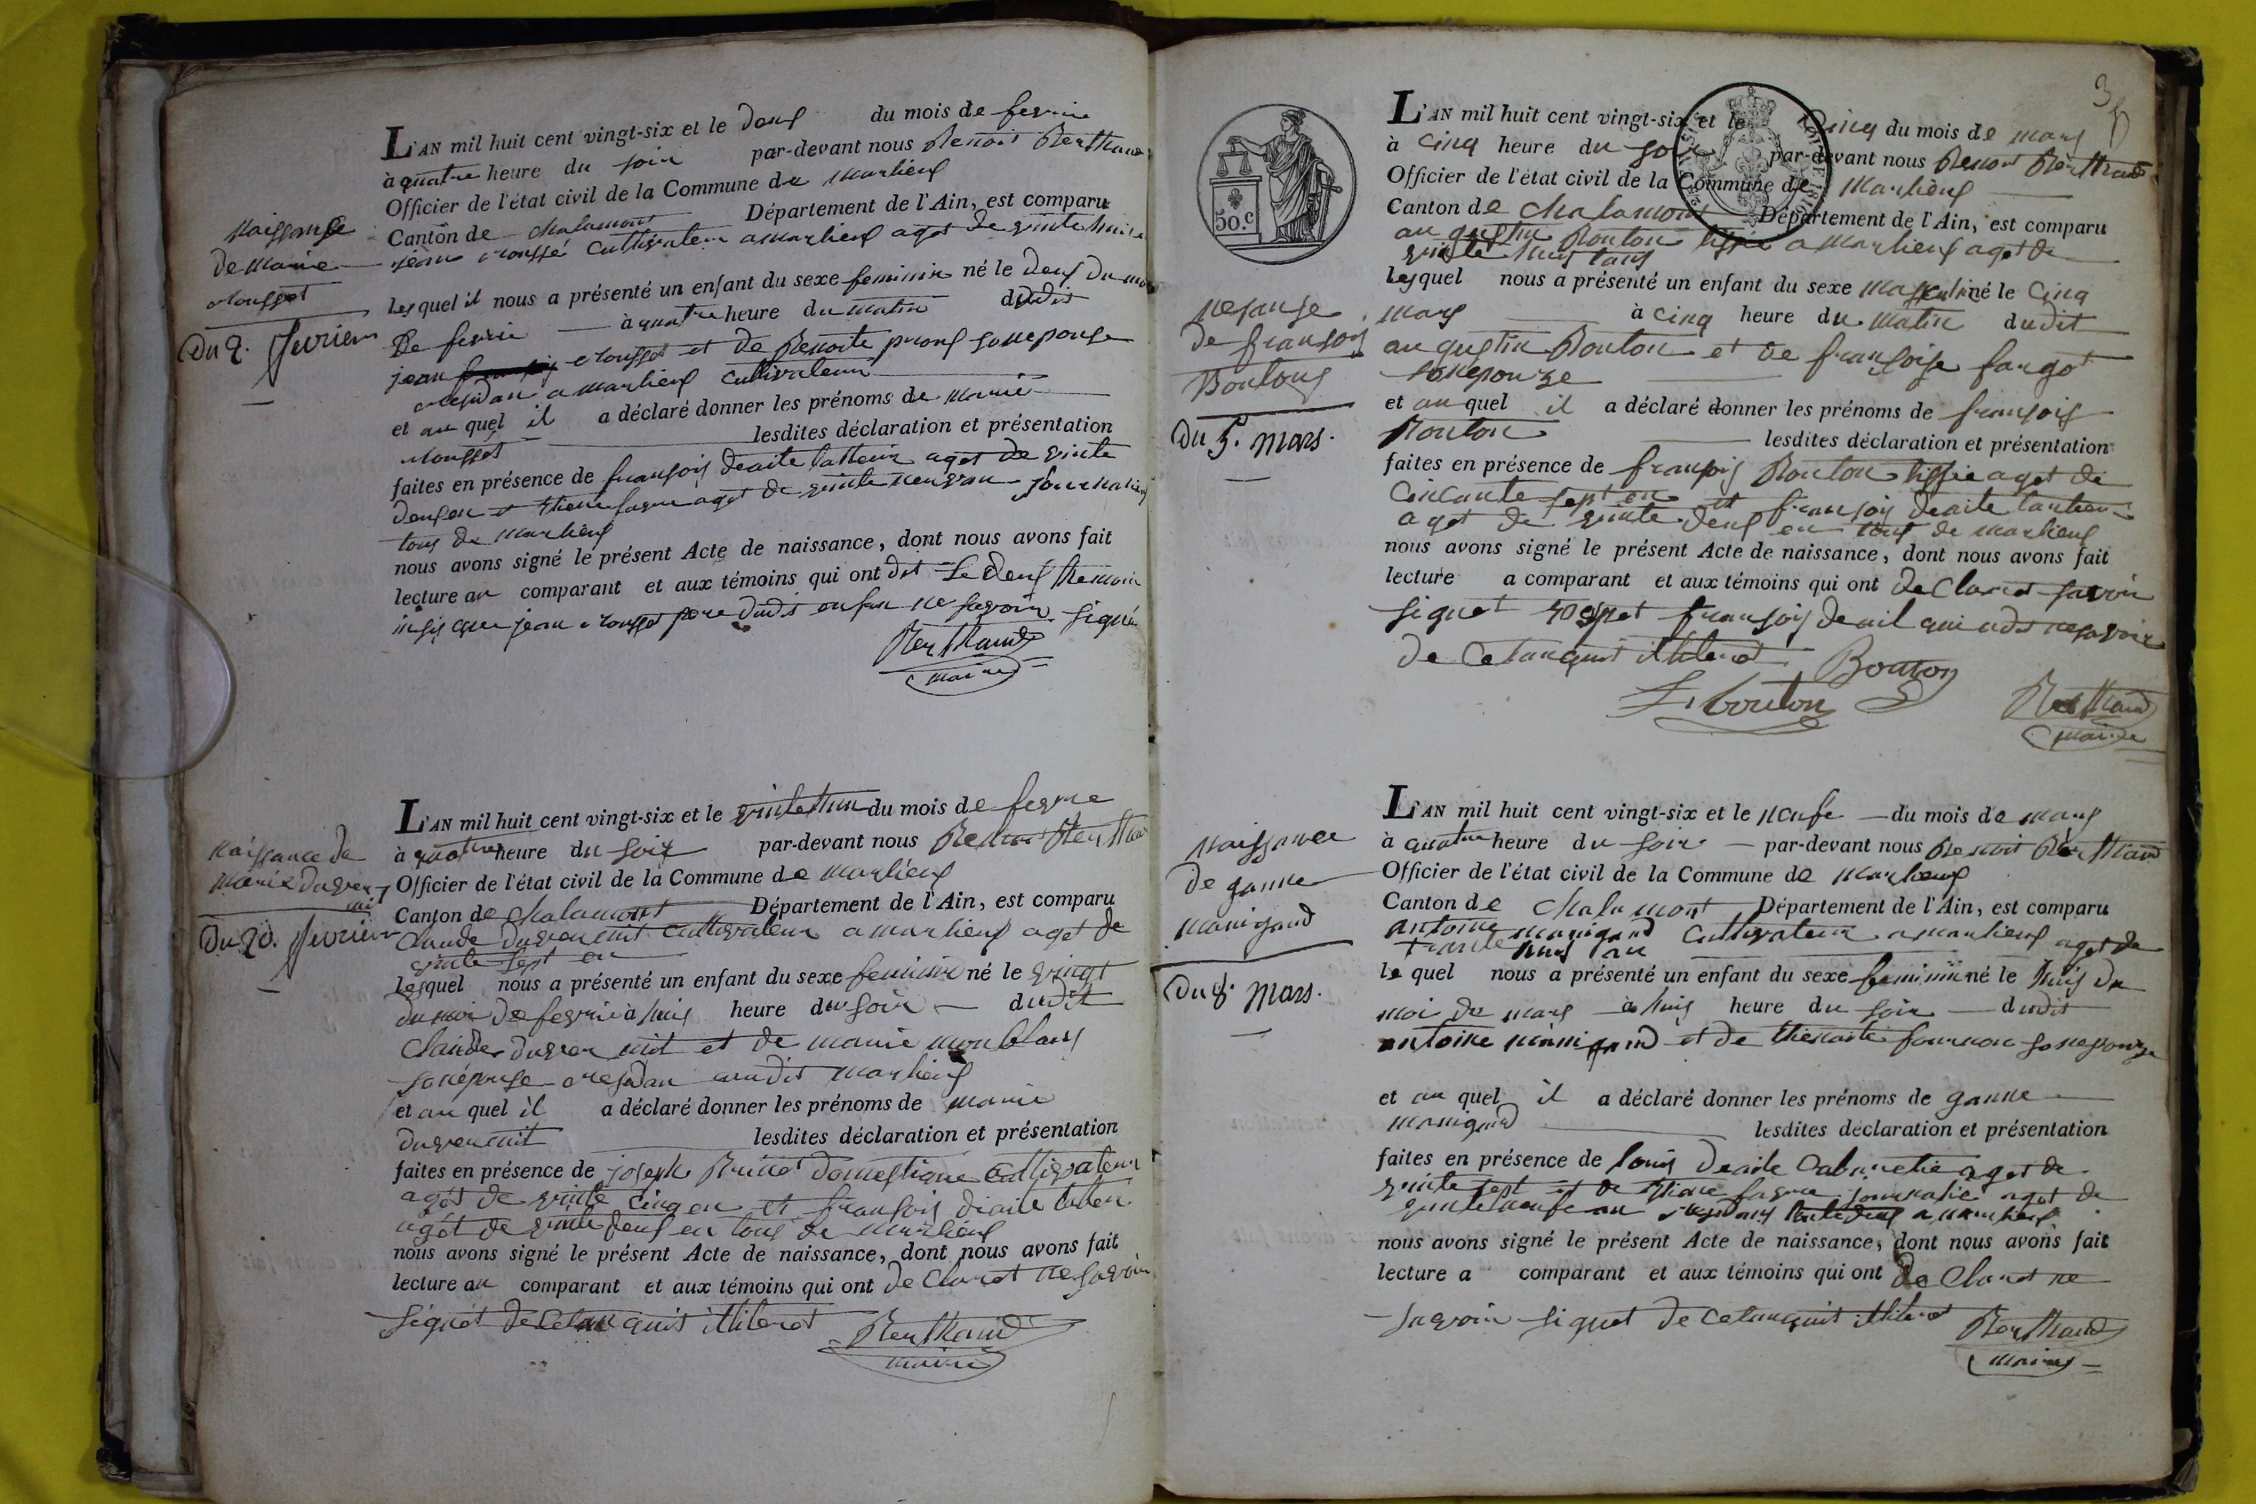 L'AN mil huit cent vingt-six et le deux du mois de fevrie
à quatre heure du soir par-devant nous Benoit Berthaud
Officier de l'état civil de la Commune de marlieux
Canton de chalamont Département de l'Ain, est comparu
jean croussé cultivateur a marlieux aget de
Naissanse
de marie
croussot
Du 2. fevrier
lesquel il nous a présenté un enfant du sexe feminin né le deux du moi
De fevrie à quatre heure du matin dudit
jean croussot et de Benoite sonepouse
a marlieux cultivateur
et au quel il a déclaré donner les prénoms de marie
croussot lesdites déclaration et présentation
faites en présence de françois deaite aget de vinte
deux en et aget de vinte neuv an journalie
tous de marlieux
nous avons signé le présent Acte de naissance, dont nous avons fait
lecture au comparant et aux témoins qui ont dit le deux themoin
insis que jean croussot pere dudit enfan ne savoir signé
Berthaud
maire
L'AN mil huit cent vingt-six et le vintethun du mois de fevrie
à quatre heure du soir par-devant nous Benoit Berthaud
Officier de l'état civil de la Commune de marlieux
Canton de chalamont Département de l'Ain, est comparu
Claude duvernuit cultivateur a marlieux aget de
vinte sept en
Naissance de
marie duver
nuit
Du 20. fevrier
lesquel nous a présenté un enfant du sexe feminin né le vingt
du moi de fevrie à huis heure du soir dudit
Claude duver nuit et de marie monblans
sonépouse audit marlieux
et au quel il a déclaré donner les prénoms de marie
duvernuit lesdites déclaration et présentation
faites en présence de joseph domestique cultivateur
agés de vinte cinq en et françois deaite
agét de vinte deux en tous de marlieux
nous avons signé le présent Acte de naissance, dont nous avons fait
lecture au comparant et aux témoins qui ont de claret ne savoir
signét de ce lanquis itliteret
Berthaud
maire
3
50.C
L'AN mil huit cent vingt-six et le cinq du mois de mars
à cinq heure du soir par-devant nous Benoit Berthaud
Officier de l'état civil de la Commune de Marlieux
Canton de chalamont Département de l'Ain, est comparu
augustin Bouton tissie a Marlieux aget de
vinte huis
lesquel nous a présenté un enfant du sexe masculin né le cinq
mars à cinq heure du matin dudit
Nesanse
de françois
Boutons
Du 5. mars.
augustin Bouton et de françoise fargot
sonepouze
et au quel il a déclaré donner les prénoms de françois
Bouton lesdites déclaration et présentation
faites en présence de françois Bouton tissie aget de
cincante sept en et françois deaite
aget de vinte deux en tous de marlieux
nous avons signé le présent Acte de naissance, dont nous avons fait
lecture a comparant et aux témoins qui ont de claret savoir
signet françois qui adit ne savoir
de ce lanquit itliteret
Bouton
F. bouton
Berthaud
maire
L'AN mil huit cent vingt-six et le neufe du mois de mars
à quatre heure du soir par-devant nous Benoit Berthaud
Officier de l'état civil de la Commune de Marlieux
Canton de chalamont Département de l'Ain, est comparu
antoine manigand cultivateur a marlieux aget de
trante huis an
Naissance
de ganne
manigand
Du 8. mars.
le quel nous a présenté un enfant du sexe feminin né le huis du
moi de mars à huis heure du soir dudit
antoine manigand et de thenaite sonepouze
et au quel il a déclaré donner les prénoms de ganne
manigand lesdites déclaration et présentation
faites en présence de louis deaite cabaretie aget de
vinte sept et de journalie aget de
vinteneufe an a marlieux
nous avons signé le présent Acte de naissance, dont nous avons fait
lecture a comparant et aux témoins qui ont de claret ne
savoir signet de ce lanquit itliteret
Berthaud
maire